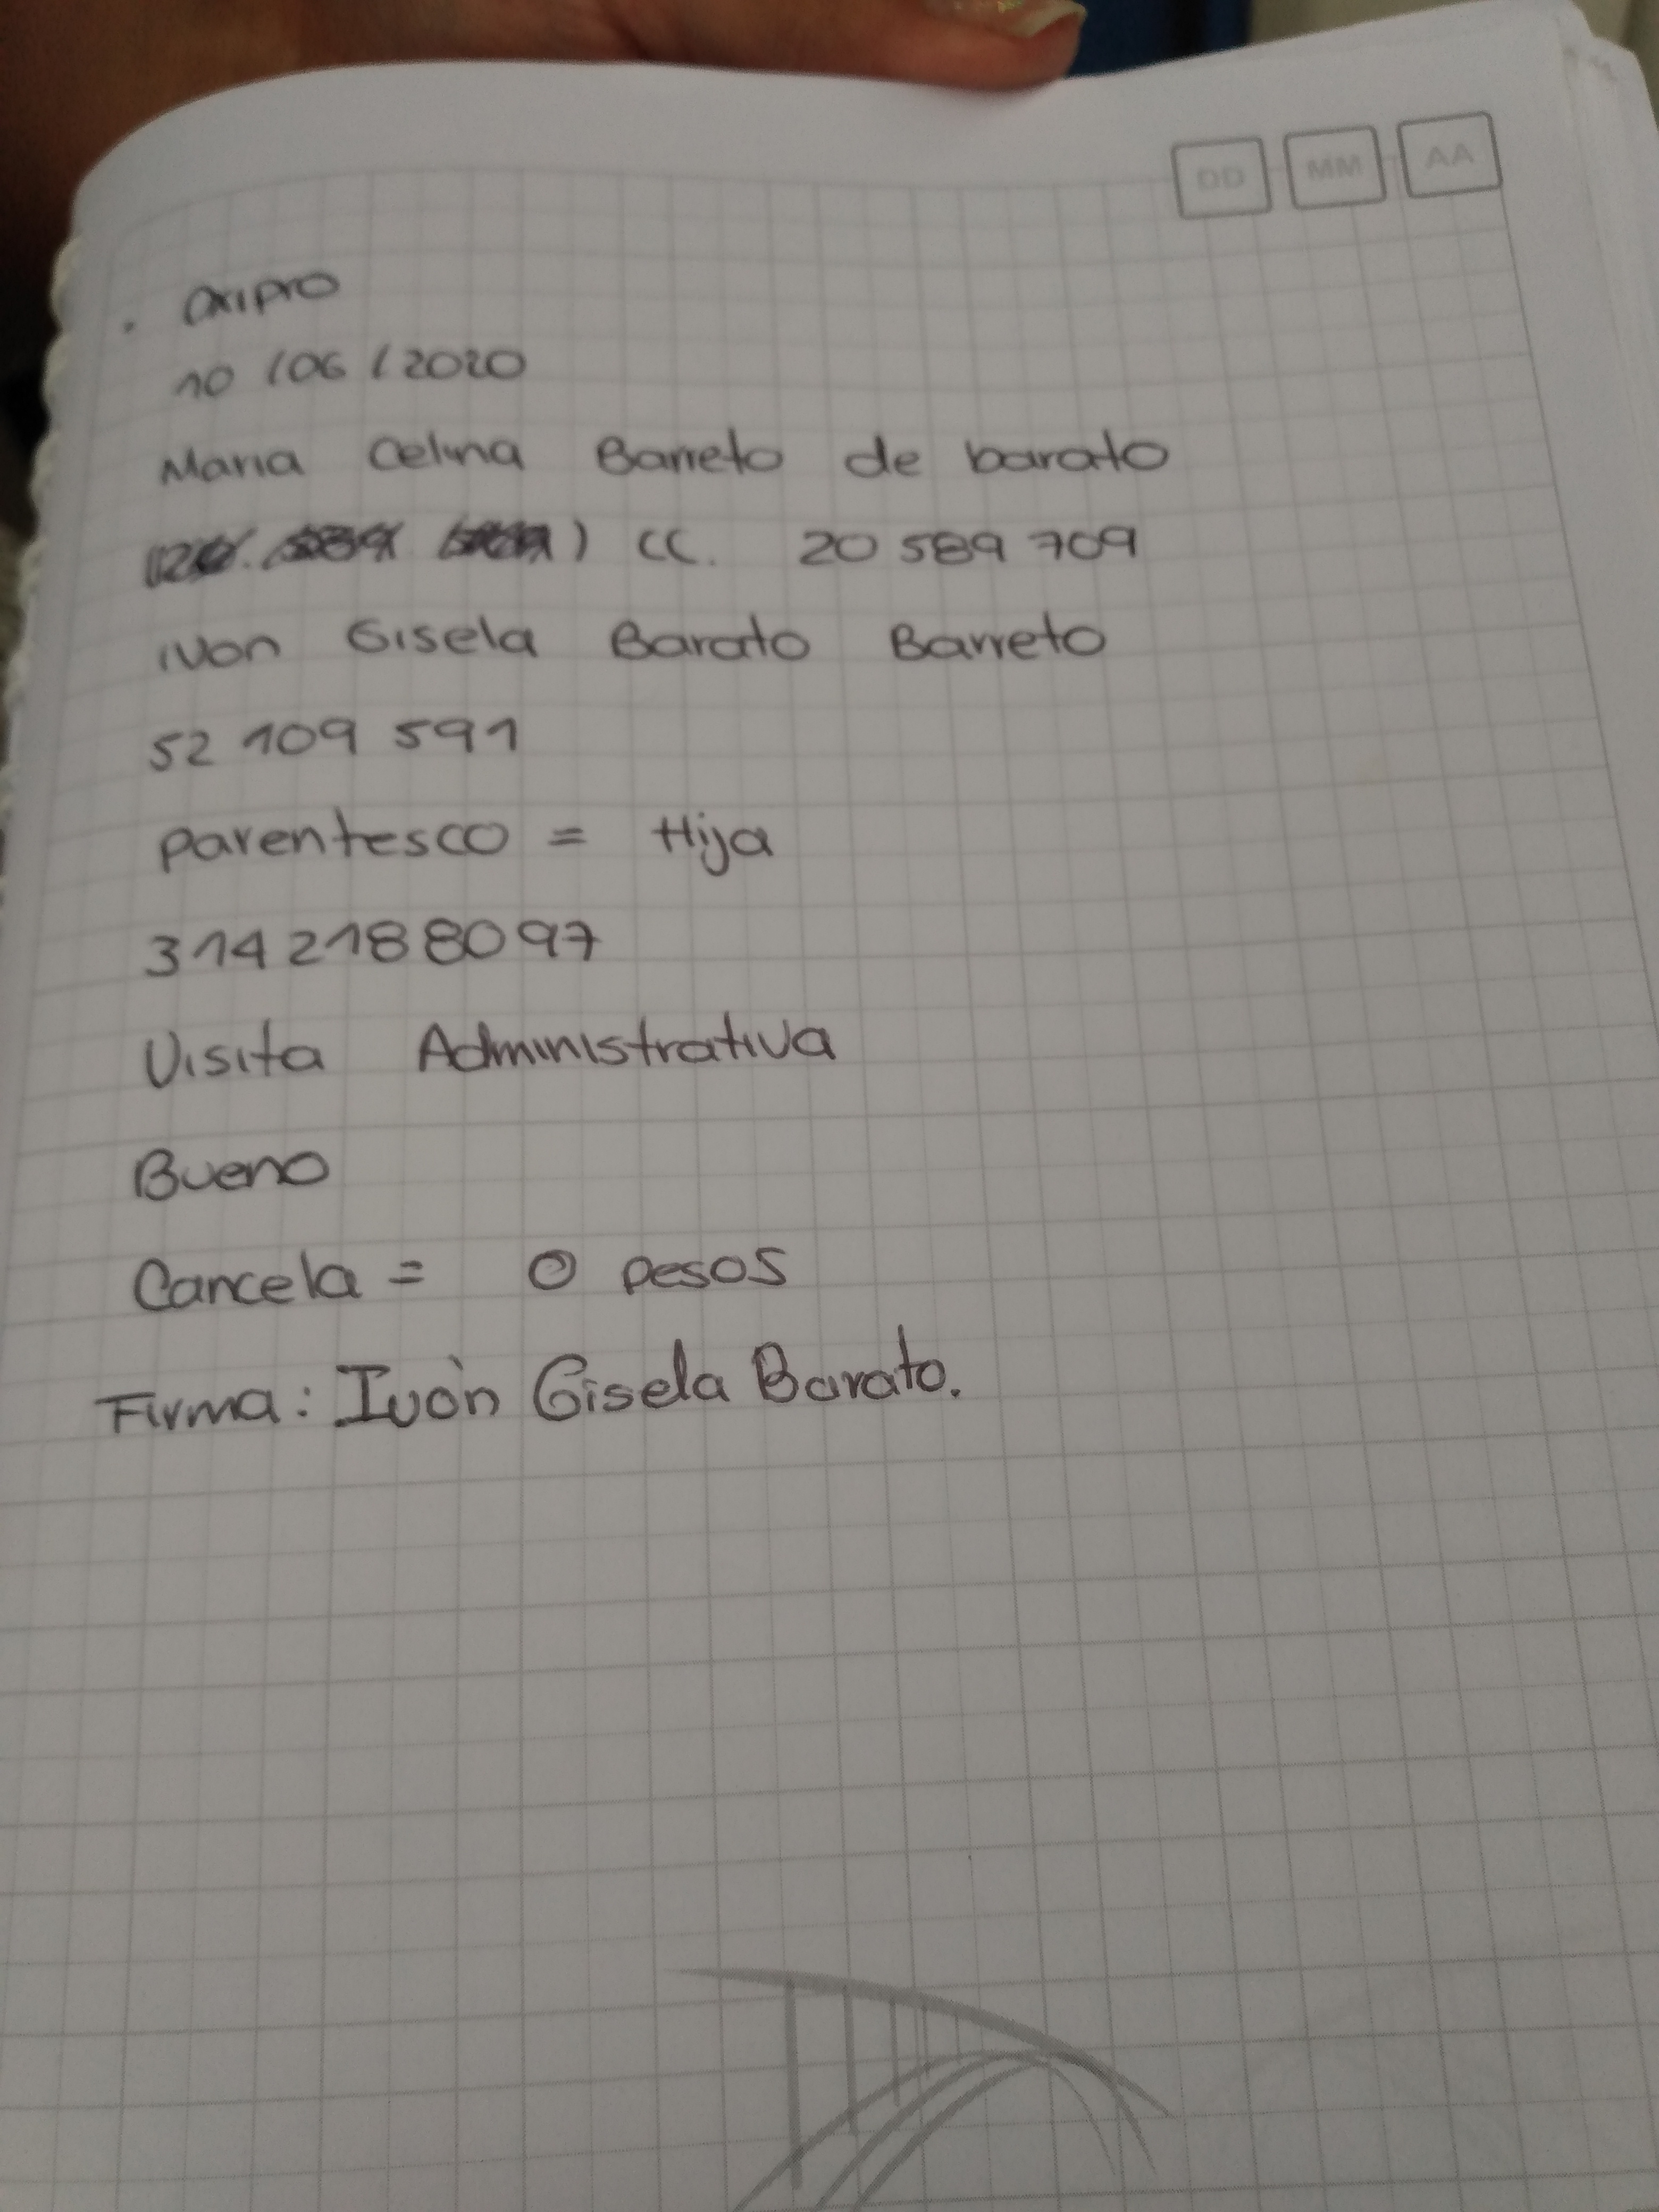 DD MM AA
. Oxipro
10 / 06 / 2020
Maria Celina Barreto de barato
) CC. 20 589 709
ivon Gisela Barato Barreto
52 109 591
parentesco = Hija
314 2188097
Visita Administrativa
Bueno
Cancela = 0 pesos
Firma: Ivòn Gisela Barato.